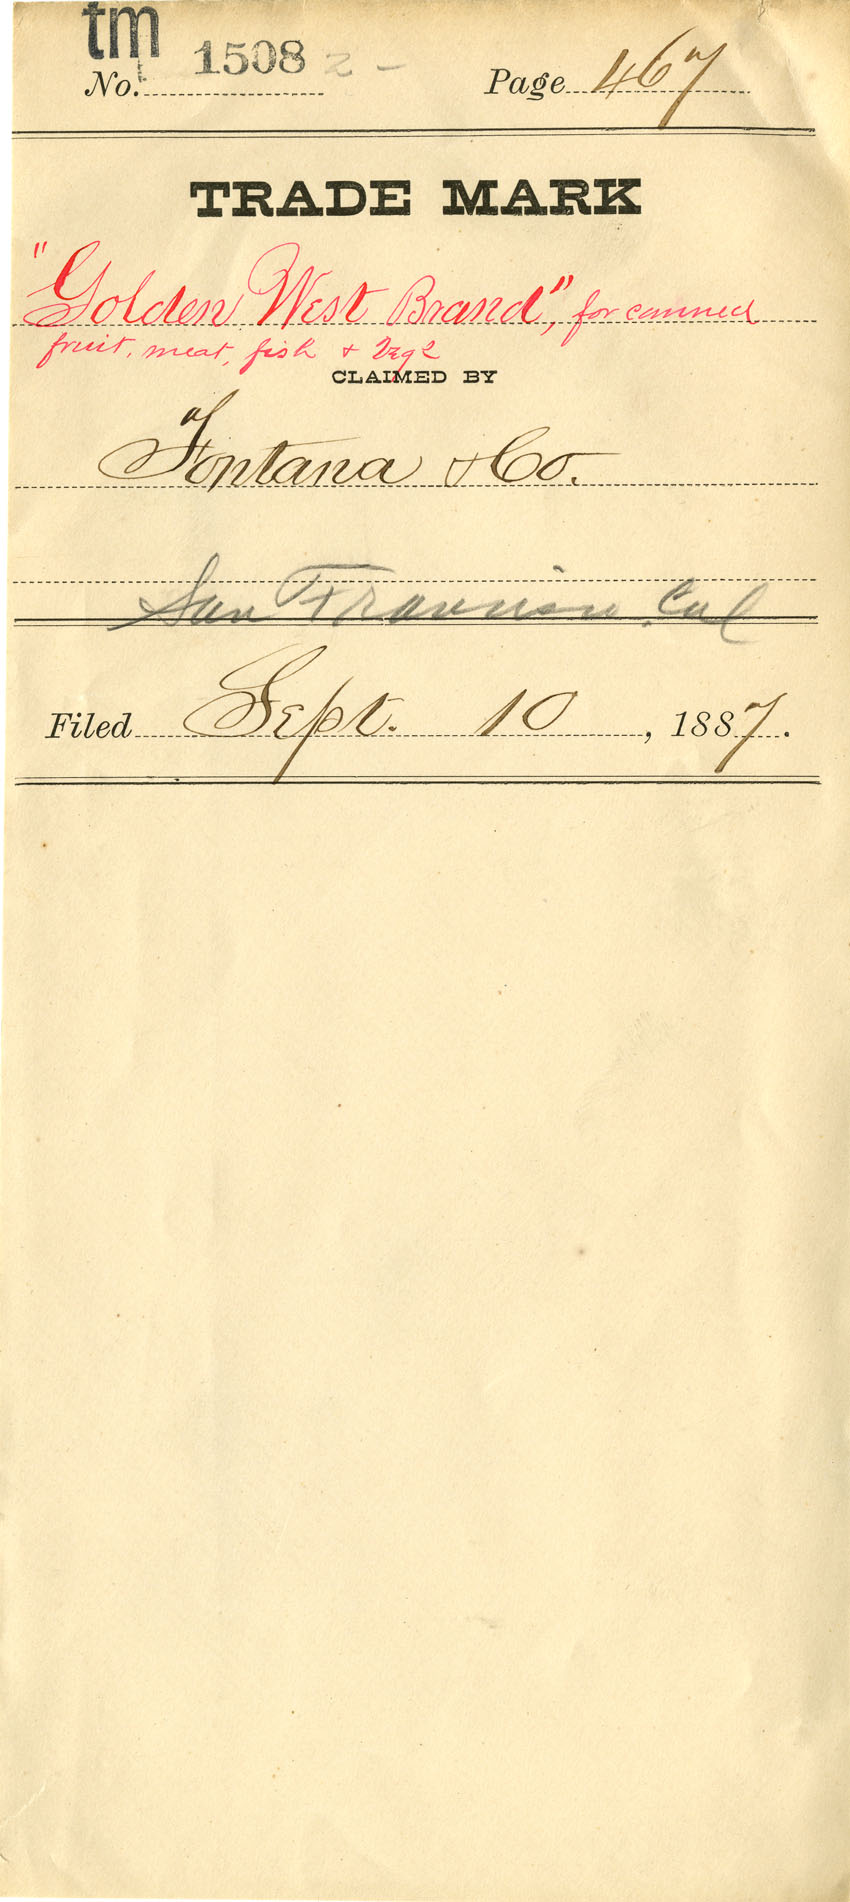 tm
No. 1508 2 - Page 467
TRADE MARK
"Golden West Brand", for canned
fruit, meat, fish & Veg
CLAIMED BY
Fontana & Co.
San Francisco Cal
Filed Sept. 10, 1887.